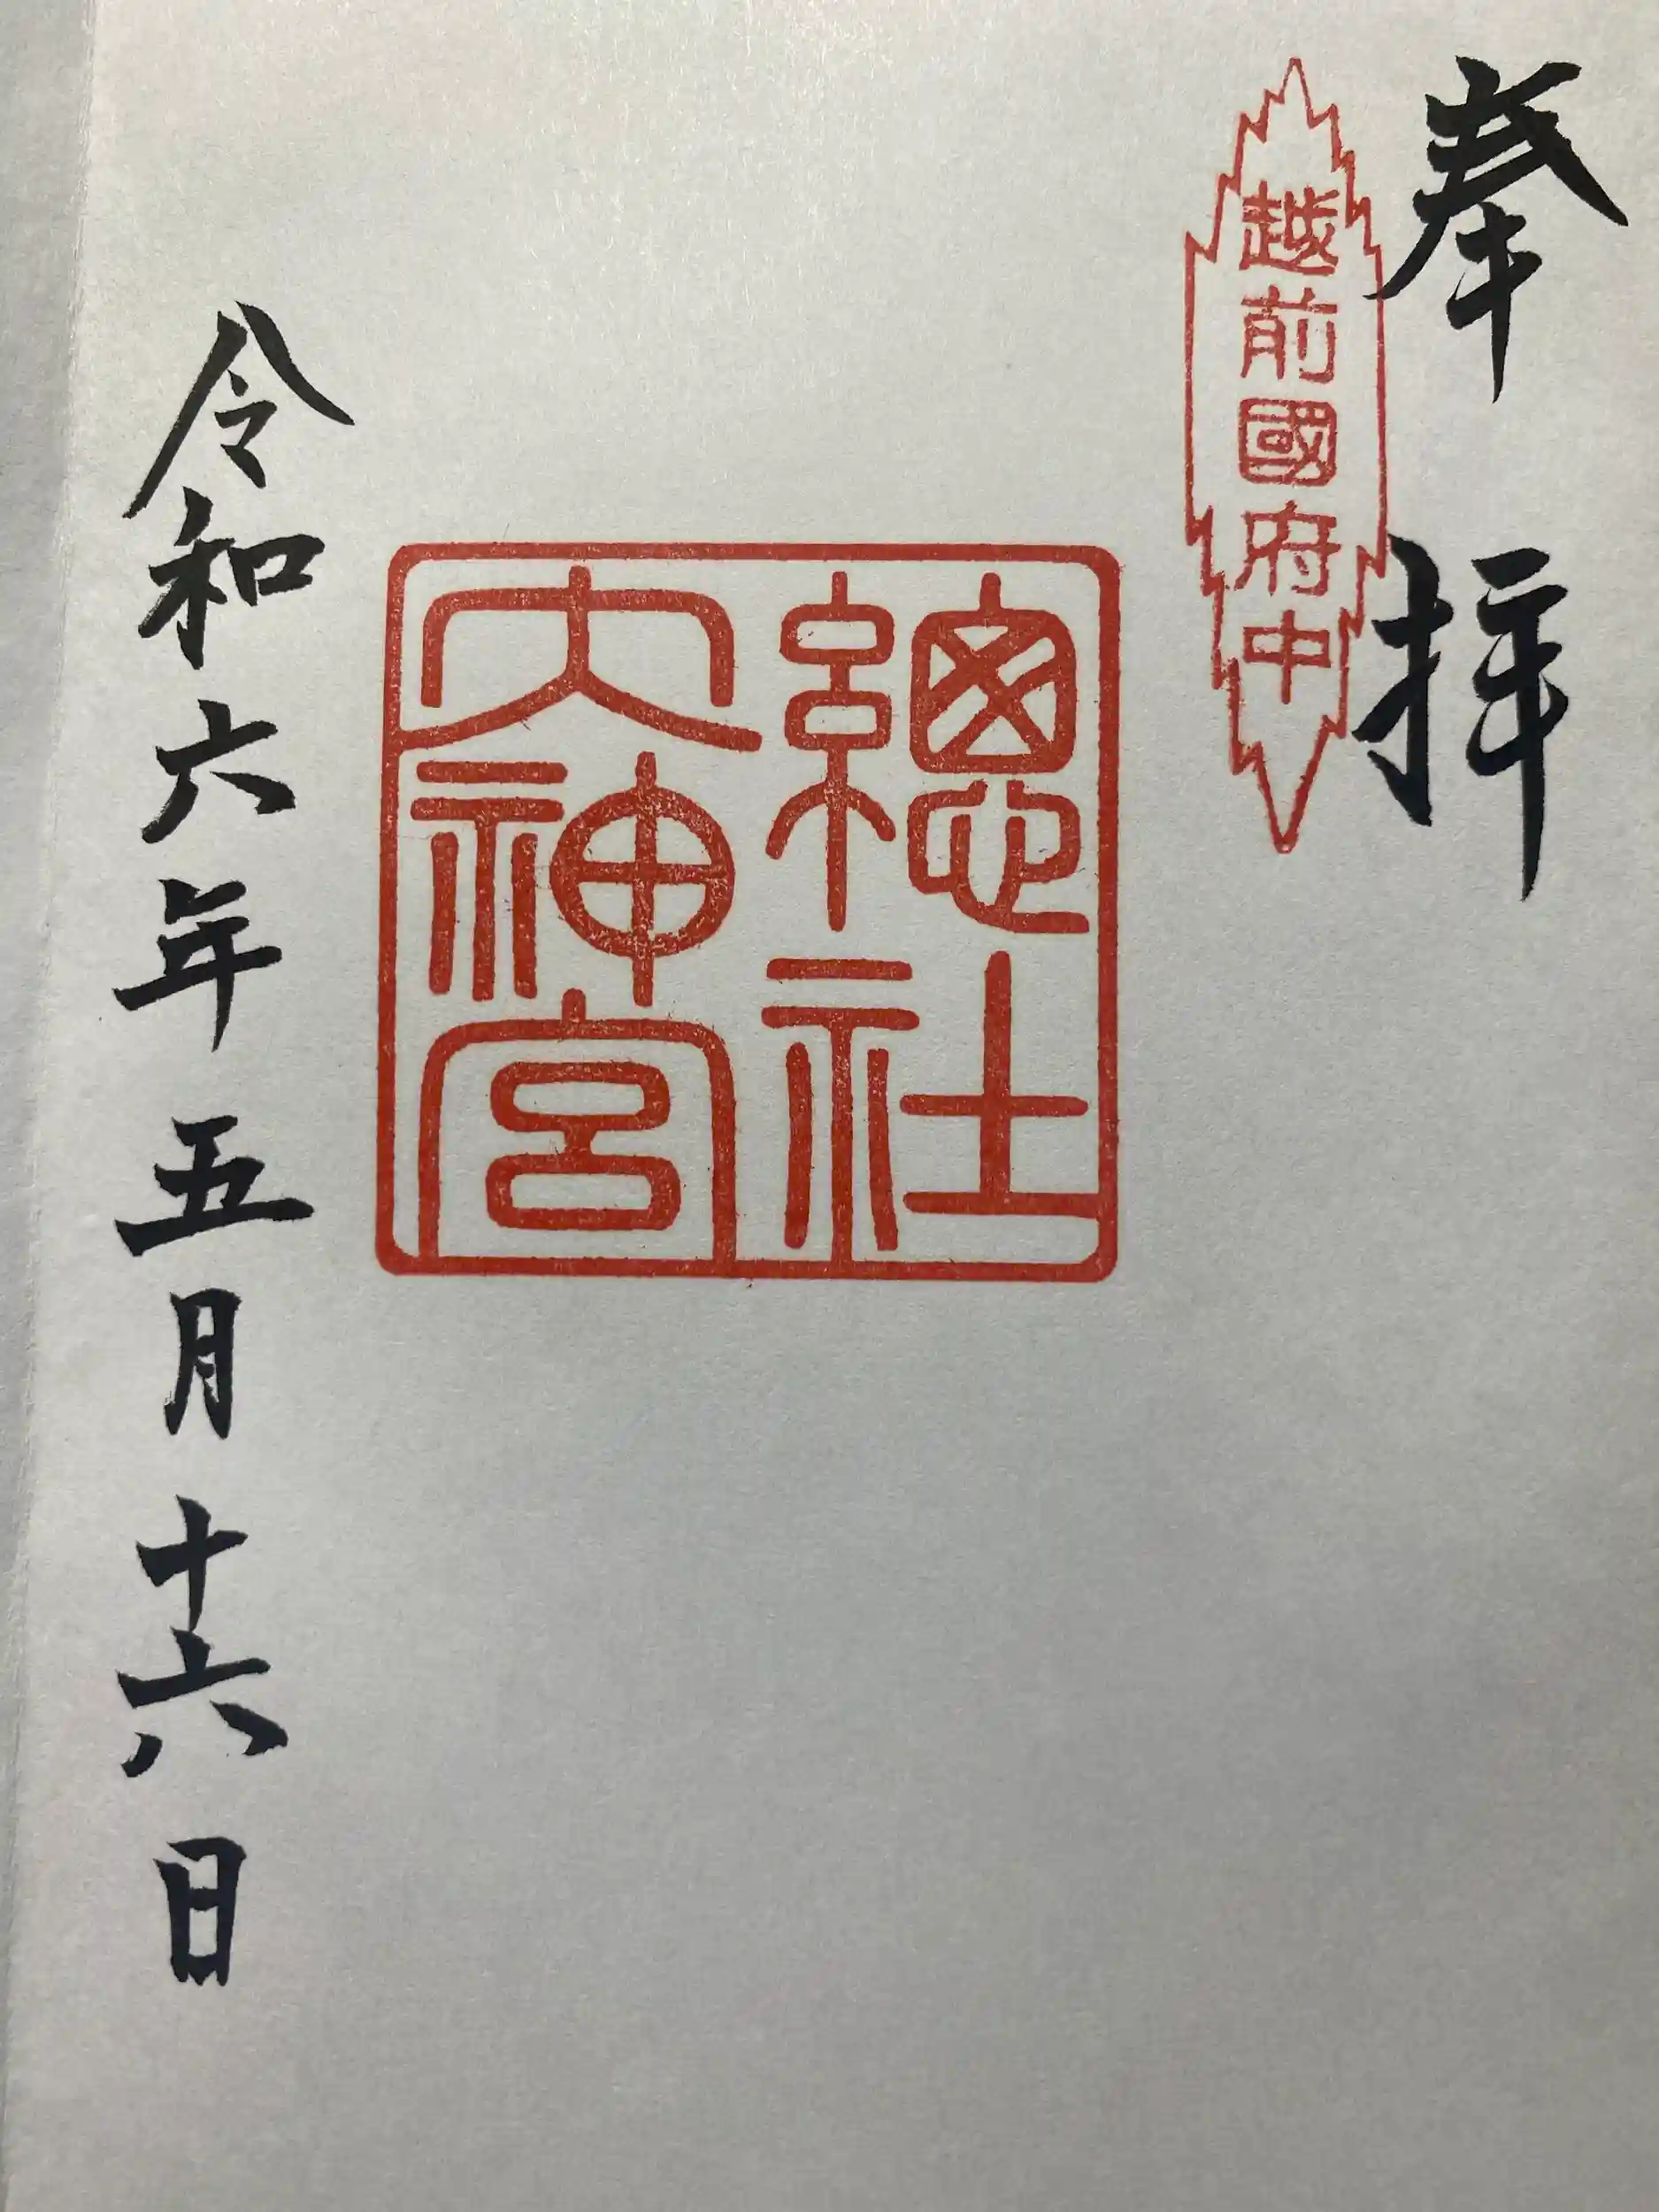 奉拝
越前國府中
總社
大神宮
令和六年五月十六日